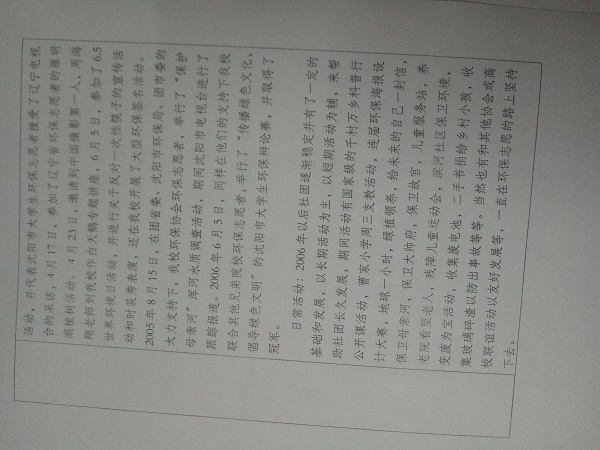 活动，并代表沈阳市大学生环保志愿者接受了辽宁电视
台的采访，4 月 17 日，参加了辽宁省环保志愿者的雁明
湖植树活动。4 月 23 日，邀请到中国摄影第一人，周海
翔老师到我校作的天鹅专题讲座，6 月 5 日，参加了 6.5
世界环境日活动，并进行关于反对一次性筷子的宣传活
动和时装秀表演，还在我校开展了大型环保签名活动。
2005 年 8 月 15 日，在团省委、沈阳市环保局、团市委的
大力支持下，我校环保协会环保志愿者，举行了“保护
母亲河”浑河水质调查活动，期间沈阳市电视台进行了
跟踪报道。2006 年 6 月 5 日，同样在他们的支持下我校
联合其他兄弟院校环保志愿者，举行了“传播绿色文化，
倡导绿色文明”的沈阳市大学生环保辩论赛，并取得了
冠军。
日常活动：2006 年以后社团逐渐稳定并有了一定的
基础和发展，以长期活动为主，以短期活动为辅，来帮
助社团长久发展，期间活动有国家级的千村万乡科普行
公开课活动，曹家小学周三支教活动，连届环保海报设
计大赛，地球一小时，绿植领养，给未来的自己一封信，
保卫母亲河，保卫大帅府，保卫故宫，儿童服务站，养
老院看望老人，残障儿童运动会，滨河社区保卫环境，
变废为宝活动，收集废电池，二手书捐给乡村小孩，收
集玻璃碎渣以防出事故等等。当然也有和其他协会或高
校联谊活动以友好发展等，一直在环保志愿的路上坚持
下去。